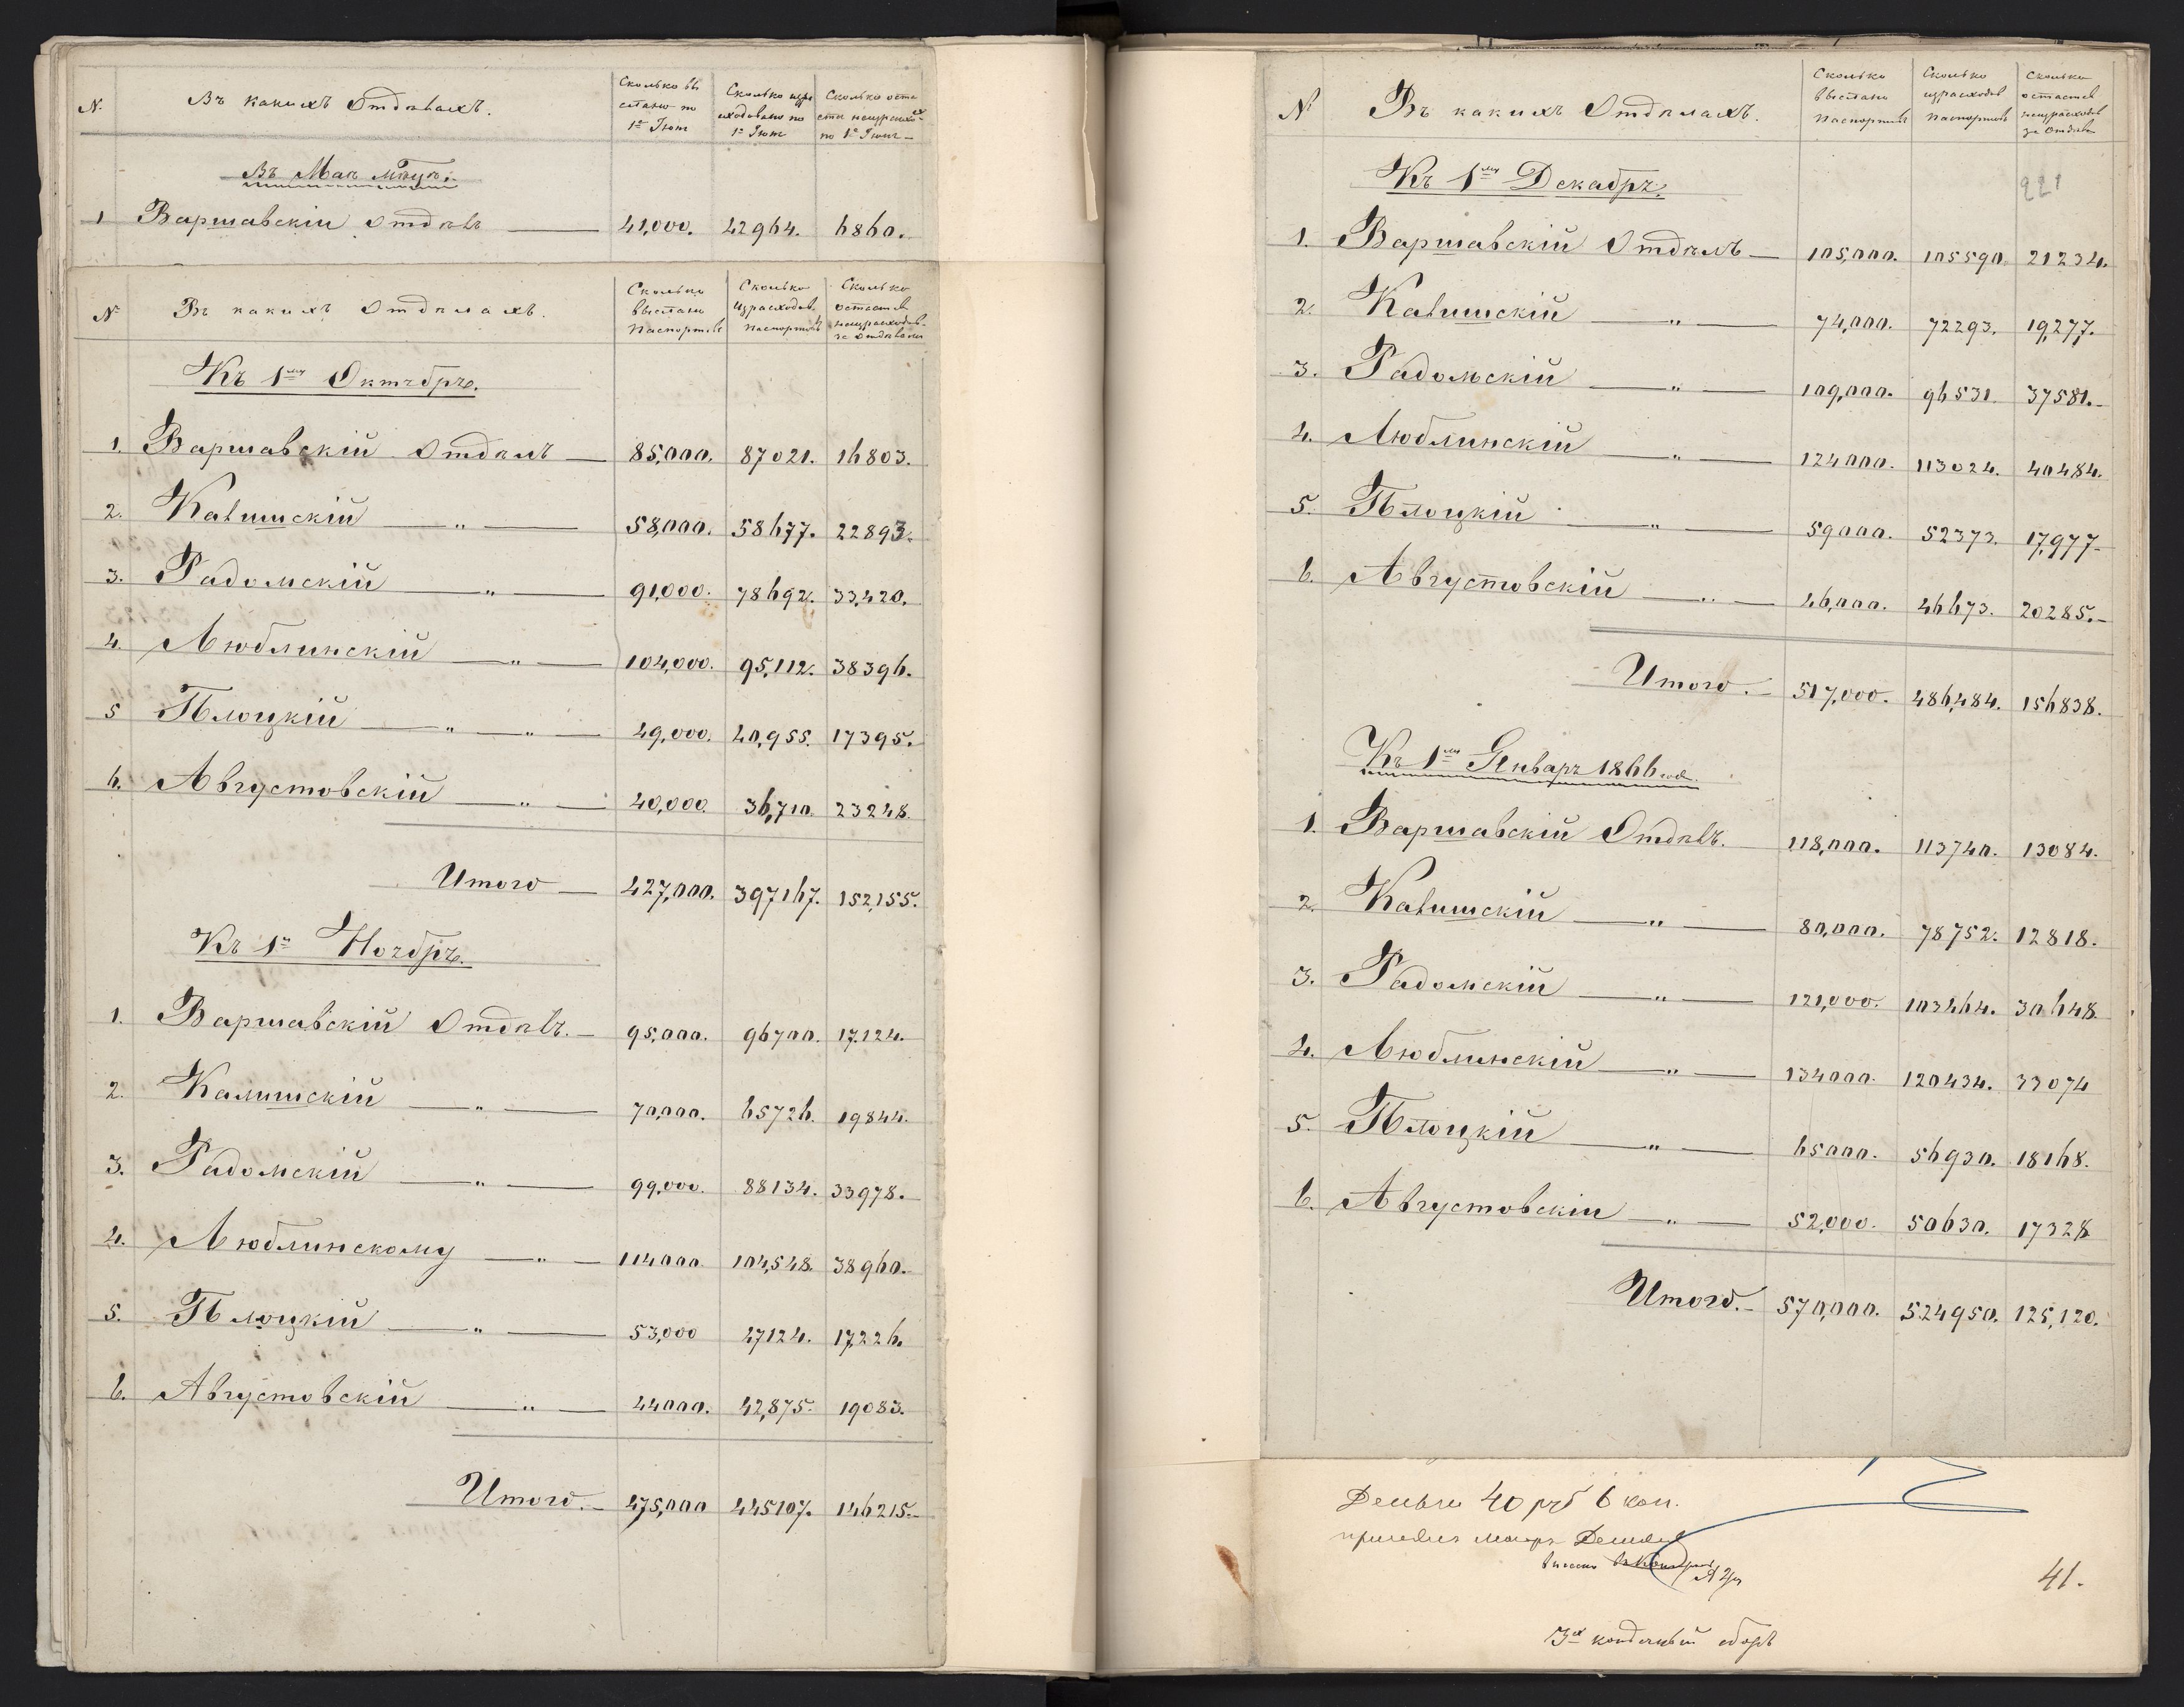 № Въ какихъ Отдѣлахъ. Сколько вы- слано по 1е Іюня Сколько изра- сходовано по 1е Іюня Сколько оста- ется неизрасхо- по 1е Іюня
Въ Маѣ мѣсяцѣ.
1 Варшавскій Отдѣлъ 41,000. 42964. 6860.
№ Въ какихъ Отдѣлахъ. Сколько выслано паспортовъ Сколько израсходов. паспортовъ Сколько остается неизрасходов. за Отдѣлами
Къ 1му Октября.
1. Варшавскій Отдѣлъ 85,000. 87021. 16803.
2. Калишскій — „ — 58,000. 58677. 22893.
3. Радомскій — „ — 91,000. 78692. 33,420.
4. Люблинскій — „ — 104,000. 95,112. 38396.
5 Плоцкій — „ — „ — 49,000. 40,955. 17395.
6. Августовскій — „ — 40,000. 36,710. 23248.
Итого — 427,000. 397167. 152,155.
Къ 1е Ноября.
1. Варшавскій Отдѣлъ. — 95,000. 96700. 17,124.
2. Калишскій — „ — 70,000. 65726. 19844.
3. Радомскій — „ — 99,000. 88134. 33978.
4. Люблинскому — „ — 114000. 104,548. 38960.
5. Плоцкій — „ — 53,000 47124. 17,226.
6. Августовскій — „ — 44000. 42,875. 19083.
Итого. — 475,000 445107. 146215.
№ Въ какихъ Отдѣлахъ. Сколько выслано паспортовъ Сколько израсходов паспортовъ Сколько остается неизрасходов за Отдѣл
Къ 1му Декабря.
221
1. Варшавскій Отдѣлъ — 105,000. 105590. 21234.
2. Калишскій — „ — 74,000. 72293. 19,277.
3. Радомскій — „ — 109,000. 96531. 37581.
4. Люблинскій — „ — 124000. 113024. 40484.
5. Плоцкій — „ — 59000. 52373. 17,977
6. Августовскій — „ — 46,000. 46673. 20285.
Итого. — 517,000. 486,484. 156838.
Къ 1му Января 1866 год.
1. Варшавскій Отдѣлъ. 118,000. 113740. 13084.
2. Калишскій — „ — 80,000. 78752. 12818.
3. Радомскій — „ — 121,000. 103464. 30648.
4. Люблинскій — „ — 134000. 120434. 33074
5. Плоцкій — „ — 65000. 56930. 18168.
6. Августовскій — „ — 52,000. 50630. 17328
Итого. — 570,000. 524950. 125,120.
Деньги 40 руб 6 коп.
принялъ маіоръ
41.
сборъ